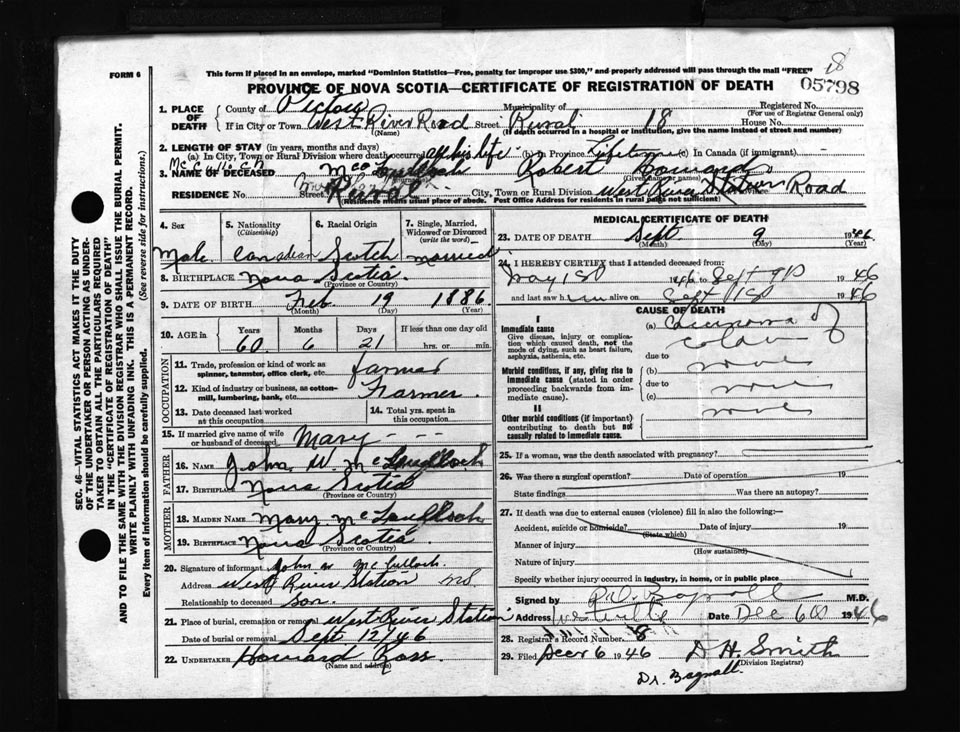 FORM 6
This form if placed in an envelope, marked "Dominion Statistics—Free, penalty for improper use $300," and properly addressed will pass through the mail "FREE"
8
PROVINCE OF NOVA SCOTIA—CERTIFICATE OF REGISTRATION OF DEATH
05798
1. PLACE OF DEATH
County of Pictou Municipality of Registered No.
(For use of Registrar General only)
If in City or Town West River Road Street Rural 18 House No.
(Name) (If death occurred in a hospital or institution, give the name instead of street and number)
2. LENGTH OF STAY (in years, months and days)
(a) In City, Town or Rural Division where death occurred all his life (b) In Province Lifetime (c) In Canada (if immigrant)
3. NAME OF DECEASED Robert Howard
RESIDENCE No. Rural City, Town or Rural Division West River Station Road
(Residence means usual place of abode. Post Office Address for residents in rural parts not sufficient)
4. Sex
Male
5. Nationality
(Citizenship)
Canadian
6. Racial Origin
Scotch
7. Single, Married, Widowed or Divorced
(write the word)
married
8. BIRTHPLACE Nova Scotia
(Province or Country)
9. DATE OF BIRTH Feb 19 1886
(Month) (Day) (Year)
10. AGE in
Years Months Days If less than one day old
60 6 21 hrs. or min.
OCCUPATION
11. Trade, profession or kind of work as spinner, teamster, office clerk, etc. farmer
12. Kind of industry or business, as cotton-mill, lumbering, bank, etc. Farmer
13. Date deceased last worked at this occupation
14. Total yrs. spent in this occupation
15. If married give name of wife or husband of deceased Mary - - -
FATHER
16. NAME John W.
17. BIRTHPLACE Nova Scotia
(Province or Country)
MOTHER
18. MAIDEN NAME Mary
19. BIRTHPLACE Nova Scotia
(Province or Country)
20. Signature of informant John W McCulloch
Address West River Station NS
Relationship to deceased son.
21. Place of burial, cremation or removal West River Station
Date of burial or removal Sept 12/46
22. UNDERTAKER Howard Ross
(Name and address)
MEDICAL CERTIFICATE OF DEATH
23. DATE OF DEATH Sept 9 1946
(Month) (Day) (Year)
24. I HEREBY CERTIFY that I attended deceased from:
May 1st 1946 to Sept 9th 1946
and last saw him alive on Sept 1st 1946
CAUSE OF DEATH
I
Immediate cause
Give disease, injury or complication which caused death, not the mode of dying, such as heart failure, asphyxia, asthenia, etc.
(a) Carcinoma of
colon
due to
Morbid conditions, if any, giving rise to immediate cause (stated in order proceeding backwards from immediate cause).
(b) none
due to
(c) none
II
Other morbid conditions (if important) contributing to death but not causally related to immediate cause.
none
25. If a woman, was the death associated with pregnancy?
26. Was there a surgical operation? Date of operation 19
State findings Was there an autopsy?
27. If death was due to external causes (violence) fill in also the following:—
Accident, suicide or homicide? Date of injury 19
(State which)
Manner of injury
(How sustained)
Nature of injury
Specify whether injury occurred in industry, in home, or in public place
Signed by Bagnall M.D.
Address Westville Date Dec 6th 1946
28. Registrar's Record Number 8
29. Filed Decr 6 1946 D H. Smith
(Division Registrar)
Dr. Bagnall.
SEC. 46—VITAL STATISTICS ACT MAKES IT THE DUTY
OF THE UNDERTAKER OR PERSON ACTING AS UNDER-
TAKER TO OBTAIN ALL THE PARTICULARS REQUIRED
IN THE "CERTIFICATE OF REGISTRATION OF DEATH"
AND TO FILE THE SAME WITH THE DIVISION REGISTRAR WHO SHALL ISSUE THE BURIAL PERMIT.
WRITE PLAINLY WITH UNFADING INK. THIS IS A PERMANENT RECORD.
Every item of information should be carefully supplied. (See reverse side for instructions.)